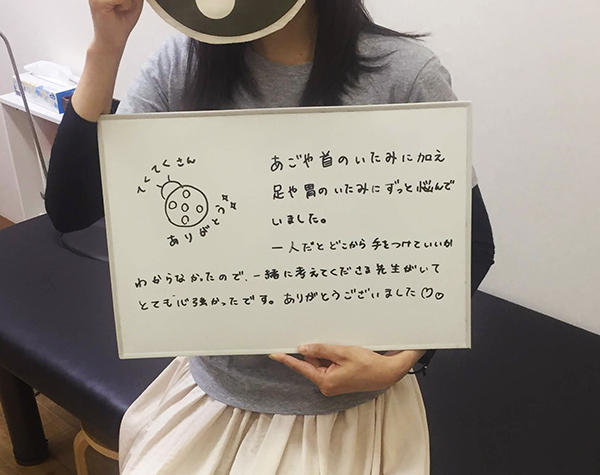 てくてくさん
ありがとう
あごや首のいたみに加え
足や胃のいたみにずっと悩んで
いました。
一人だとどこから手をつけていいか
わからなかったので、一緒に考えてくださる先生がいて
とても心強かったです。ありがとうございました♡♡